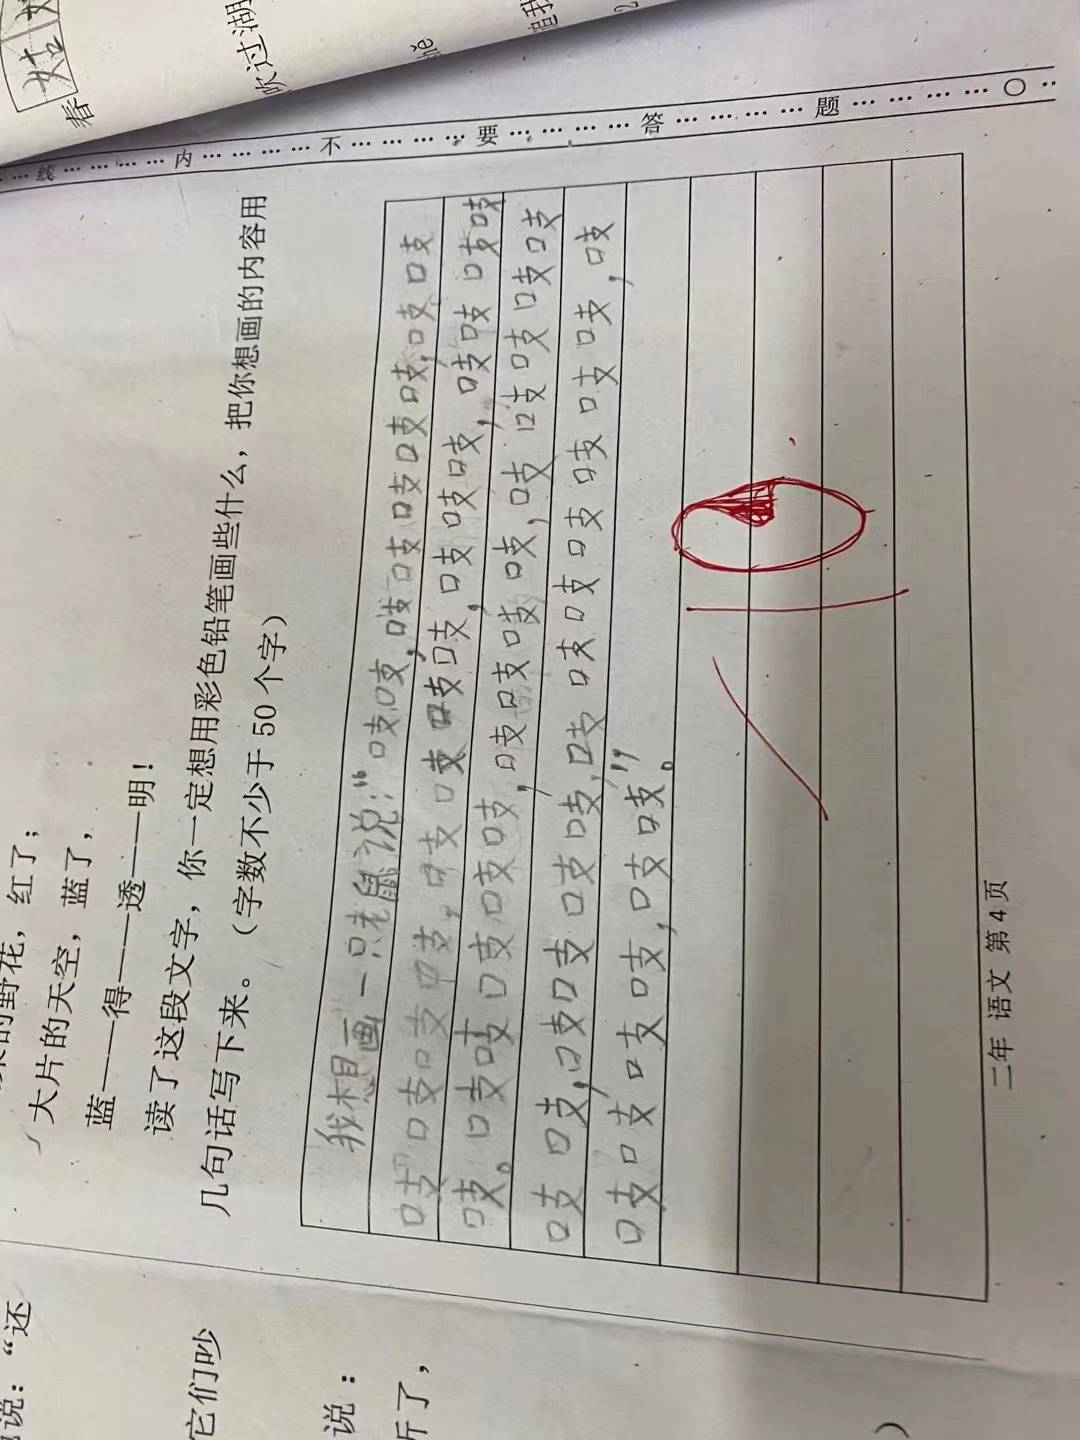 的野花，红了；
大片的天空，蓝了，
蓝——得——透——明！
读了这段文字，你一定想用彩色铅笔画些什么，把你想画的内容用
几句话写下来。（字数不少于 50 个字）
我想画一只老鼠说：“吱吱，吱吱吱吱吱，吱吱
吱吱吱吱，吱吱吱吱，吱吱吱，吱吱吱吱
吱。吱吱吱吱吱，吱吱吱吱，吱吱吱吱吱
吱吱，吱吱吱吱，吱吱吱吱吱吱吱，吱
吱吱吱吱，吱吱”。
二年 语文 第 4 页
线 内 不 要 答 题
春
吹过湖
说：“还
它们吵
说：